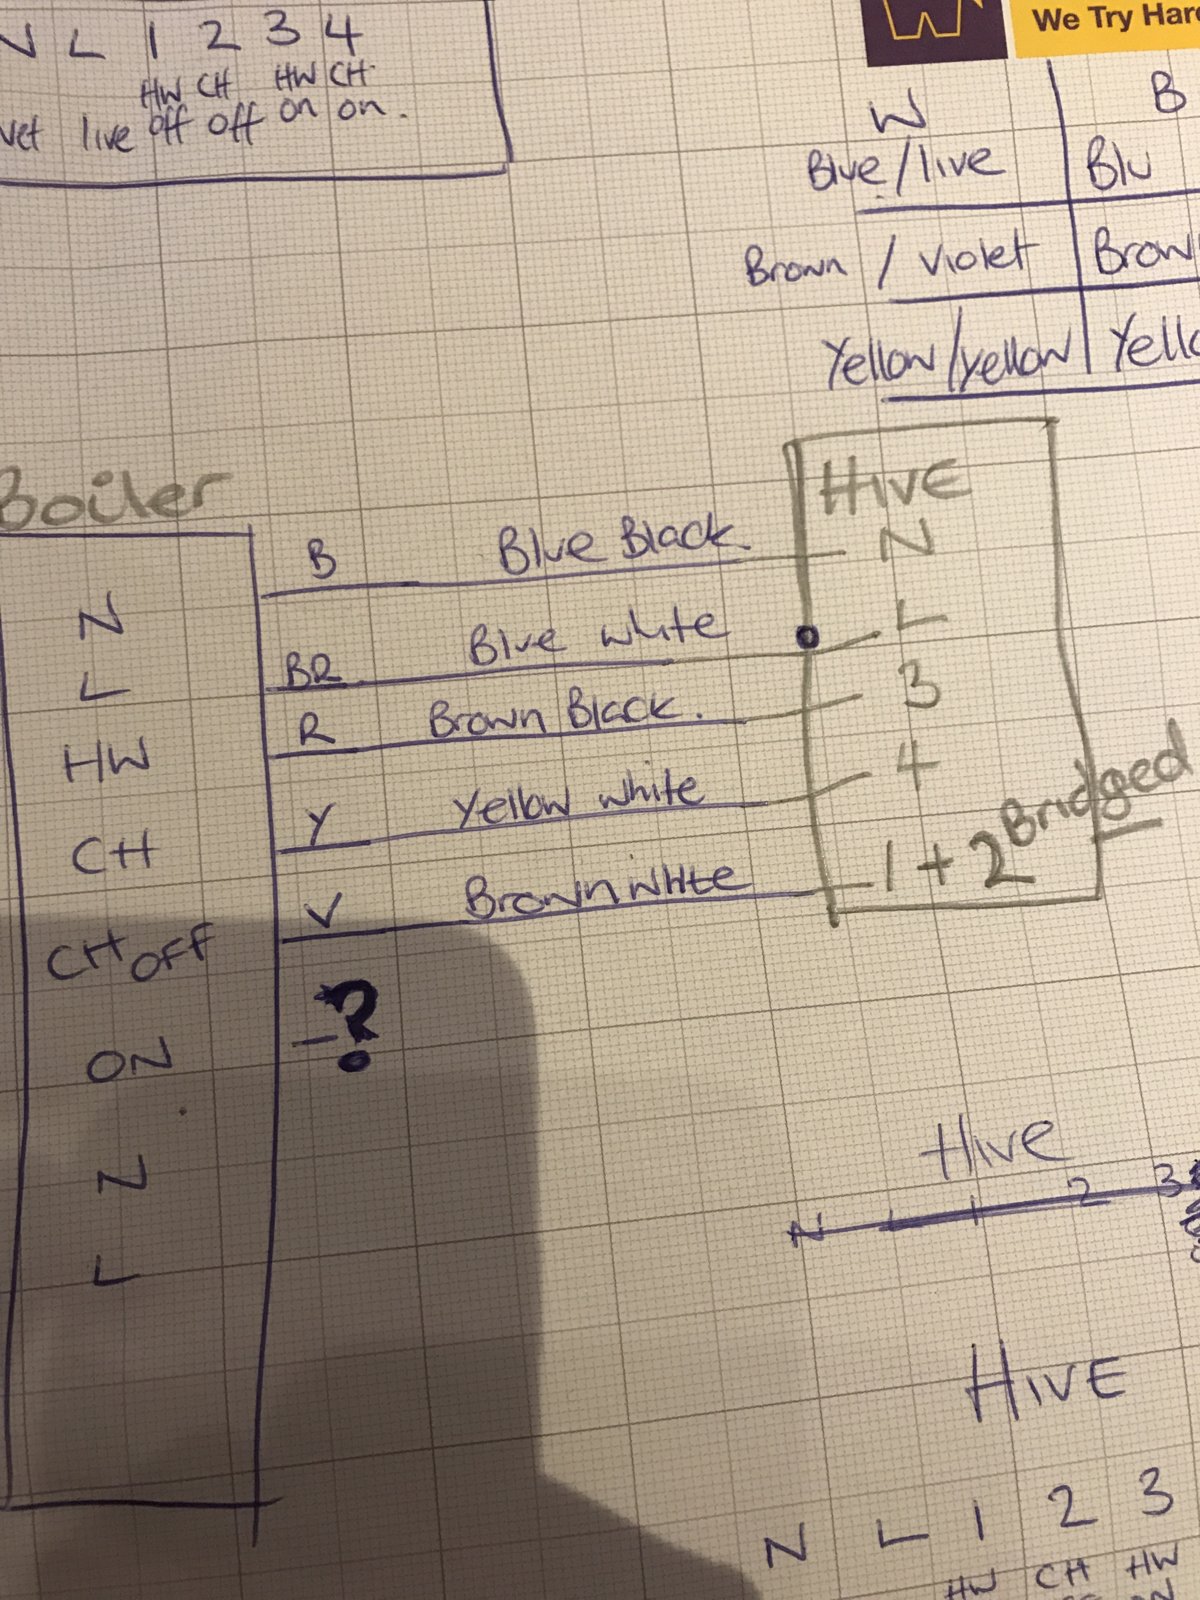 N L 1 2 3 4
HW CH HW CH
live off off on on.
We Try Hard
W B
Blue/live Blu
Brown / violet Brow
Yellow/yellow Yello
Boiler
HIVE
B Blue Black. N
N
BR Blue white L
L
R Brown Black. 3
HW
Y Yellow white 4
CH
V Brown White 1 + 2 Bridged
CH OFF
?
ON
N
L
Hive
N L 1 2 3
HIVE
N L 1 2 3
HW CH HW